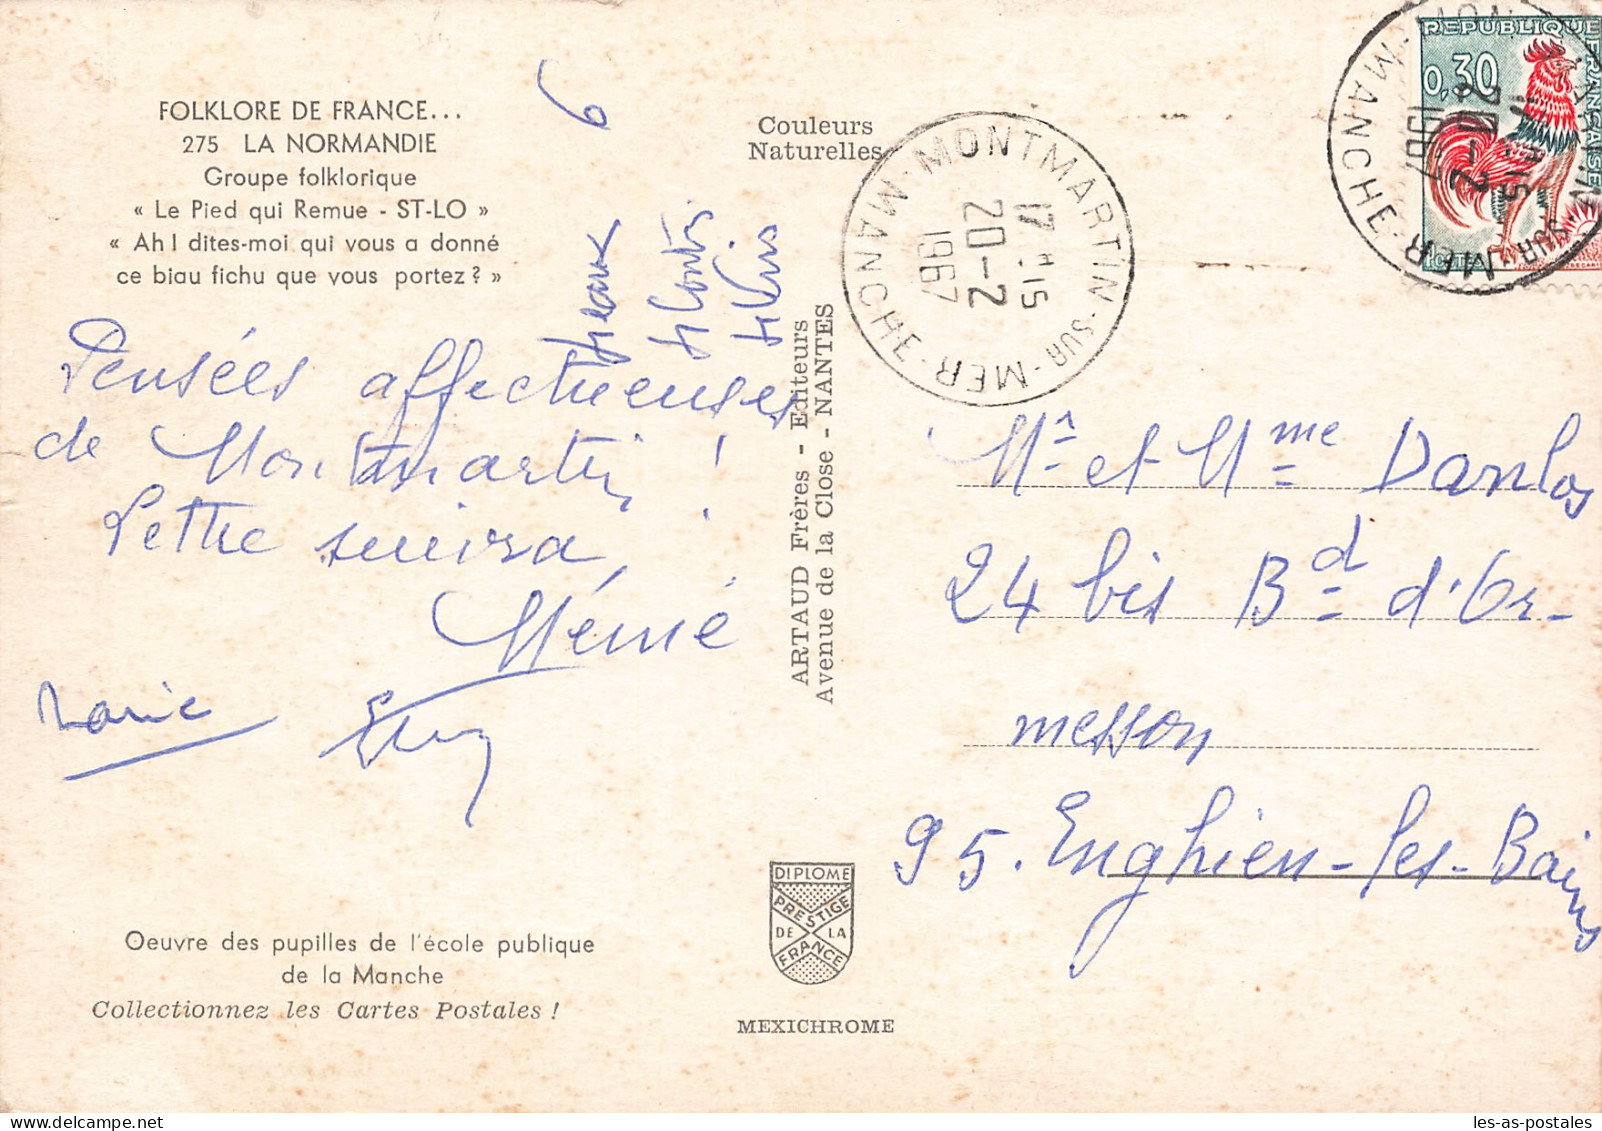 FOLKLORE DE FRANCE...
275 LA NORMANDIE
Groupe folklorique
« Le Pied qui Remue - ST-LO »
« Ah! dites-moi qui vous a donné
ce biau fichu que vous portez? »
6
Pensées affectueuses
de Montmartin !
Lettre suivra !
Mémé
Marie
Oeuvre des pupilles de l'école publique
de la Manche
Collectionnez les Cartes Postales !
Couleurs
Naturelles
ARTAUD Frères - Editeurs
Avenue de la Close - NANTES
DIPLOME
PRESTIGE
DE LA
FRANCE
MEXICHROME
MONTMARTIN-SUR-MER
MANCHE
17 H 15
20-2
1967
REPUBLIQUE FRANCAISE
0,30
MANCHE
SUR-MER
1967
Mr et Mme Danlos
24 bis Bd d'Or-
messon
95. Enghien-les-Bains
les-as-postales